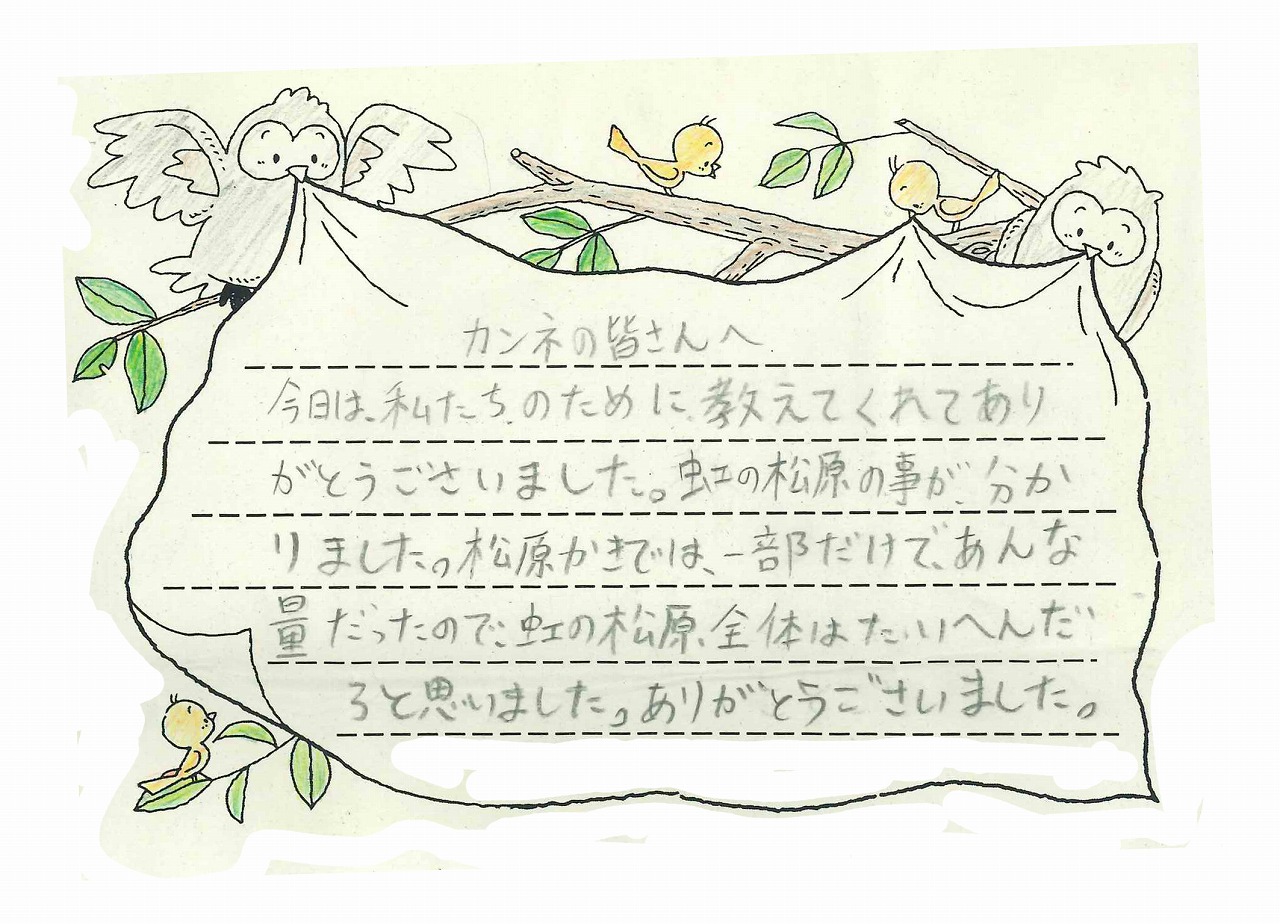 カンネの皆さんへ
今日は、私たちのために、教えてくれてあり
がとうございました。虹の松原の事が、分か
りました。松原かきでは、一部だけで、あんな
量だったので、虹の松原、全体はたいへんだ
ろと思いました。ありがとうございました。